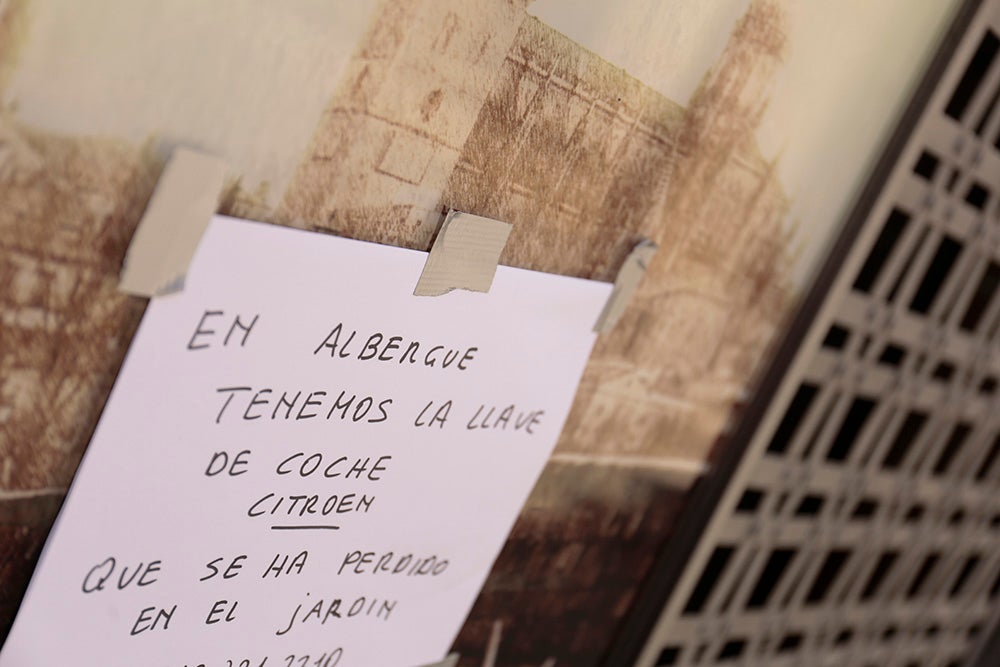 EN ALBERGUE
TENEMOS LA LLAVE
DE COCHE
CITROEN
QUE SE HA PERDIDO
EN EL JARDIN